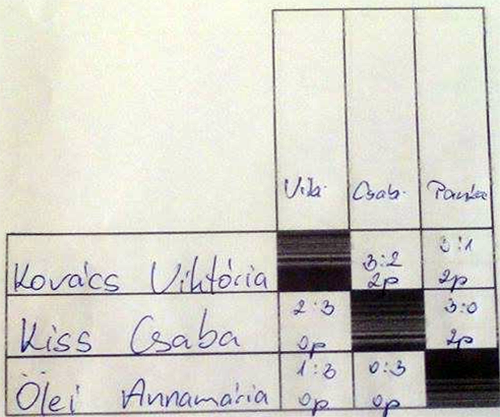 Viki Csaba Pancsa
Kovács Viktória 3:2 2p 3:1 2p
Kiss Csaba 2:3 0p 3:0 2p
Ölei Annamária 1:3 0p 0:3 0p